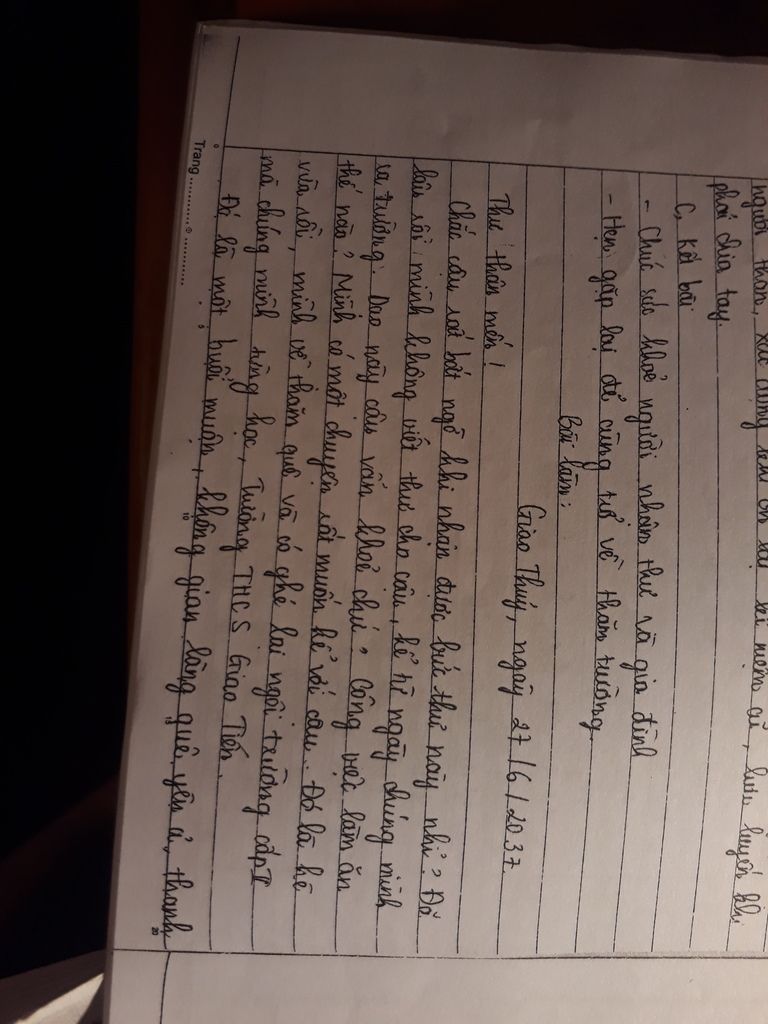 người thân, xúc động xem ôn lại kỉ niệm cũ, lưu luyến khi
phải chia tay.
C, Kết bài
- Chúc sức khoẻ người nhận thư và gia đình
- Hẹn gặp lại để cùng trở về thăm trường.
Bài làm:
Giao Thuỷ, ngày 27/6/2037
Thư thân mến!
Chắc cậu rất bất ngờ khi nhận được bức thư này nhỉ? Đã
lâu rồi mình không viết thư cho cậu, kể từ ngày chúng mình
ra trường. Dạo này cậu vẫn khoẻ chứ? Công việc làm ăn
thế nào? Mình có một chuyện rất muốn kể với cậu. Đó là hè
vừa rồi, mình về thăm quê và có ghé lại ngôi trường cấp II
mà chúng mình từng học, Trường THCS Giao Tiến.
Đó là một buổi muộn, không gian làng quê yên ả, thanh
Trang
10
20